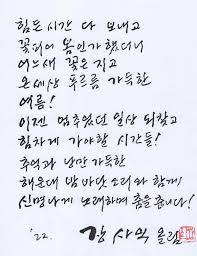 힘든시간 다 보내고
꽃피어 봄인가 했더니
어느새 꽃은 지고
온세상 푸르름 가득한
여름!
이젠 멈추었던 일상 되찾고
힘차게 가야할 시간들!
추억과 낭만 가득한
해운대 밤바닷소리와 함께
신명나게 노래하며 춤을 춥니다!
'22. 강사익 올림